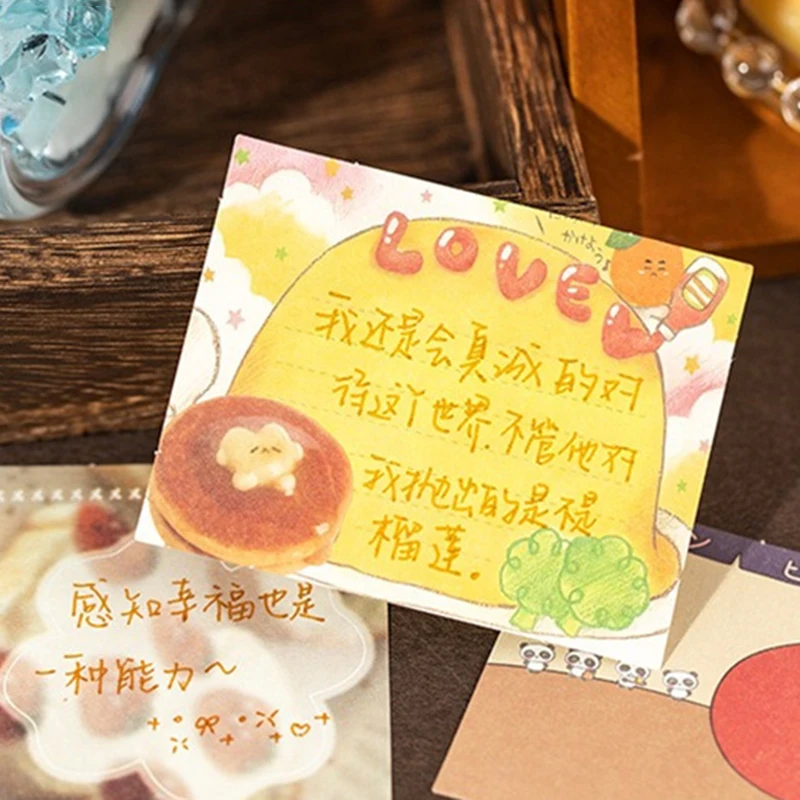 LOVE
我还是会真诚的对
待这个世界.不管他对
我抛出的是不是
榴莲。
感知幸福也是
一种能力~